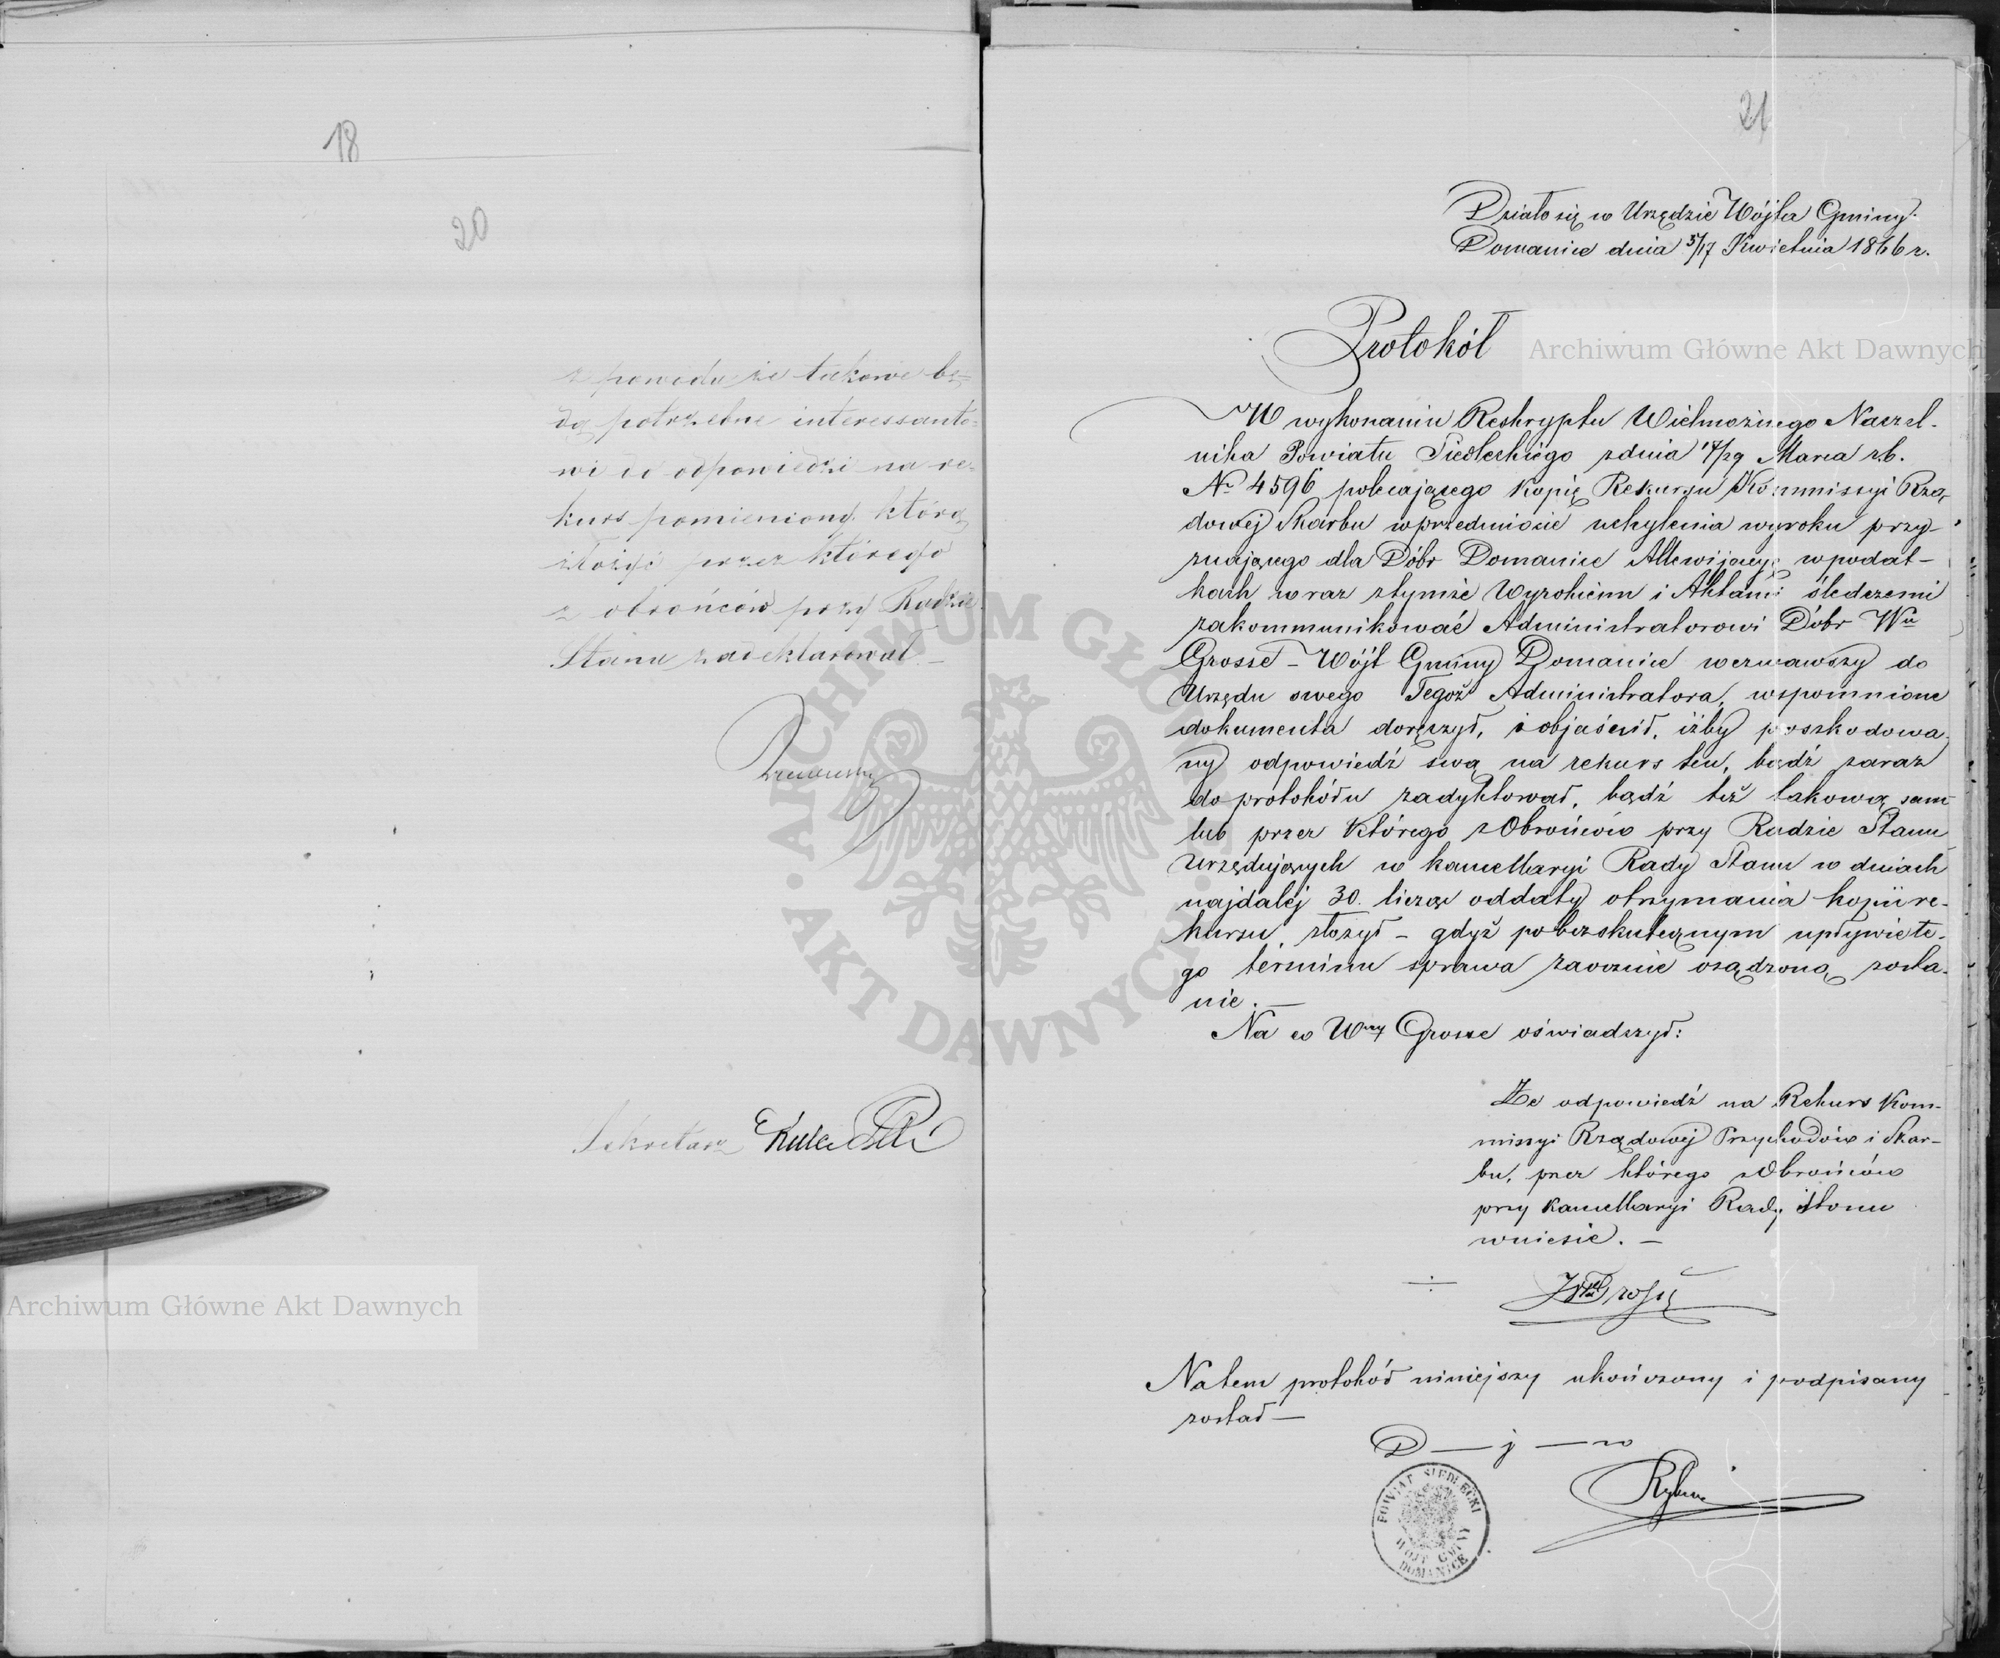 18
20
z powodu że takowe bę-
dą potrzebne interessanto-
wi do odpowiedzi na re-
kurs pomieniony którą
złożyć przez którego
z obrońców przy Radzie
Stanu zadeklarował. —
Sekretarz
21
Działo się w Urzędzie Wójta Gminy
Domanice dnia 5/17 Kwietnia 1866 r.
Protokół
W wykonaniu Reskryptu Wielmożnego Naczel-
nika Powiatu Siedleckiego z dnia 17/29 Marca r.b.
Nr 4596 polecającego kopię Rekursu Kommissyi Rzą-
dowej Skarbu w przedmiocie uchylenia wyroku przy-
znającego dla Dóbr Domanice Allewijacyę w podat-
kach wraz z tymże Wyrokiem i Aktami śledczemi
zakommunikować Administratorowi Dóbr Wu
Grosse – Wójt Gminy Domanice wezwawszy do
Urzędu swego Tegoż Administratora, wspomnione
dokumenta doręczył, i objaśnił, iżby poszkodowa-
ny odpowiedź swą na rekurs ten, bądź zaraz
do protokółu zadyktował, bądź też takową sam
lub przez którego z Obrońców przy Radzie Stanu
Urzędujących w kancellaryi Rady Stanu w dniach
najdalej 30. licząc od daty otrzymania kopii re-
kursu, złożył – gdyż po bezskutecznym upływie te-
go terminu sprawa zaocznie osądzoną zosta-
nie. —
Na co Wny Grosse oświadczył:
Że odpowiedź na Rekurs Kom-
missyi Rządowej Przychodów i Skar-
bu, przez którego z Obrońców
przy Kancellaryi Rady Stanu
wniesie. —
Na tem protokół niniejszy ukończony i podpisany
został —
D — j — w
POWIAT SIEDLECKI
WÓJT GMINY
DOMANICE
Archiwum Główne Akt Dawnych
Archiwum Główne Akt Dawnych
ARCHIWUM GŁÓWNE AKT DAWNYCH